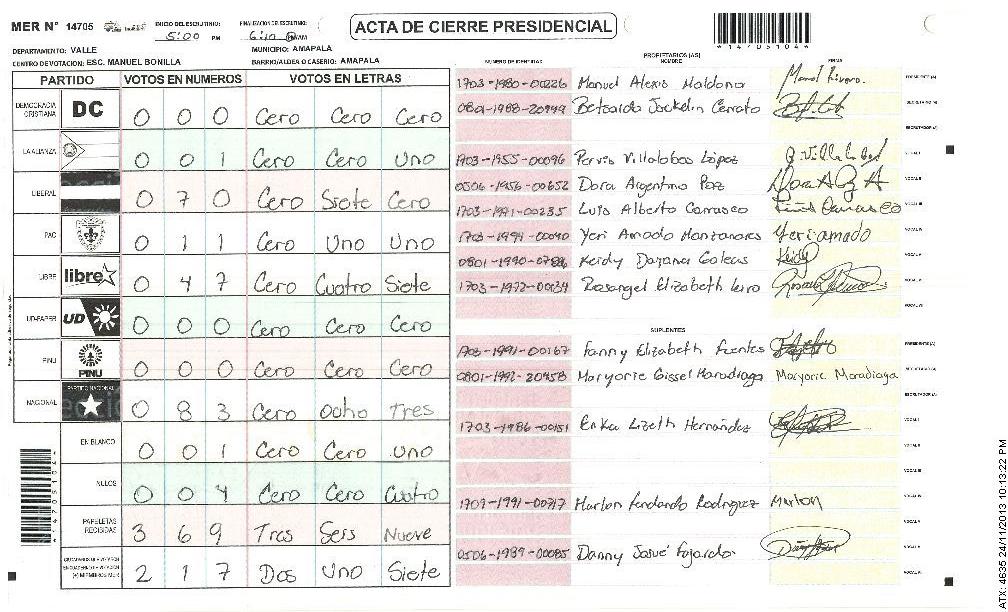 MER N° 14705
INICIO DEL ESCRUTINIO: 5:00 PM
FINALIZACION DEL ESCRUTINIO: 6:40 AM
ACTA DE CIERRE PRESIDENCIAL
*147051041*
DEPARTAMENTO: VALLE
MUNICIPIO: AMAPALA
CENTRO DE VOTACION: ESC. MANUEL BONILLA
BARRIO/ALDEA O CASERIO: AMAPALA
PARTIDO VOTOS EN NUMEROS VOTOS EN LETRAS
DEMOCRACIA CRISTIANA DC 0 0 0 Cero Cero Cero
LA ALIANZA 0 0 1 Cero Cero Uno
LIBERAL 0 7 0 Cero Siete Cero
PAC 0 1 1 Cero Uno Uno
LIBRE libre 0 4 7 Cero Cuatro Siete
UD-FAPER UD 0 0 0 Cero Cero Cero
PINU PINU 0 0 0 Cero Cero Cero
NACIONAL PARTIDO NACIONAL 0 8 3 Cero Ocho Tres
EN BLANCO 0 0 1 Cero Cero uno
NULOS 0 0 4 Cero Cero Cuatro
PAPELETAS RECIBIDAS 3 6 9 Tres Seis Nueve
(+) MIEMBROS MER 2 1 7 Dos Uno Siete
NUMERO DE IDENTIDAD PROPIETARIOS (AS) NOMBRE FIRMA
1703-1980-00226 Manuel Alexis Maldona PRESIDENTE (A)
0801-1988-20944 Betzaida Jackelin Cerrato SECRETARIO (A)
ESCRUTADOR (A)
1703-1955-00096 Pervis Villalobos López VOCAL I
0506-1956-00652 Dora Argentina Paz VOCAL II
1703-1991-00235 Luis Alberto Carrasco VOCAL III
1703-1994-00040 Yeri Amado Manzanares Yeri amado VOCAL IV
Keidy Dayana Galeas Keidy VOCAL V
1703-1972-00034 Rosangel Elizabeth VOCAL VI
VOCAL VII
SUPLENTES
1703-1991-00167 Fanny Elizabeth Fuentes PRESIDENTE (A)
0801-1992-20458 Maryorie Gissel Maradiaga Maryorie Maradiaga SECRETARIO (A)
ESCRUTADOR (A)
1703-1986-00151 Erika Lizeth Hernández VOCAL I
VOCAL II
VOCAL III
1709-1991-00717 Marlon Fernando Rodriguez Marlon VOCAL IV
VOCAL V
0506-1989-00085 Danny Josué Fajardo VOCAL VI
VOCAL VII
ATX: 4635 24/11/2013 10:13:22 PM